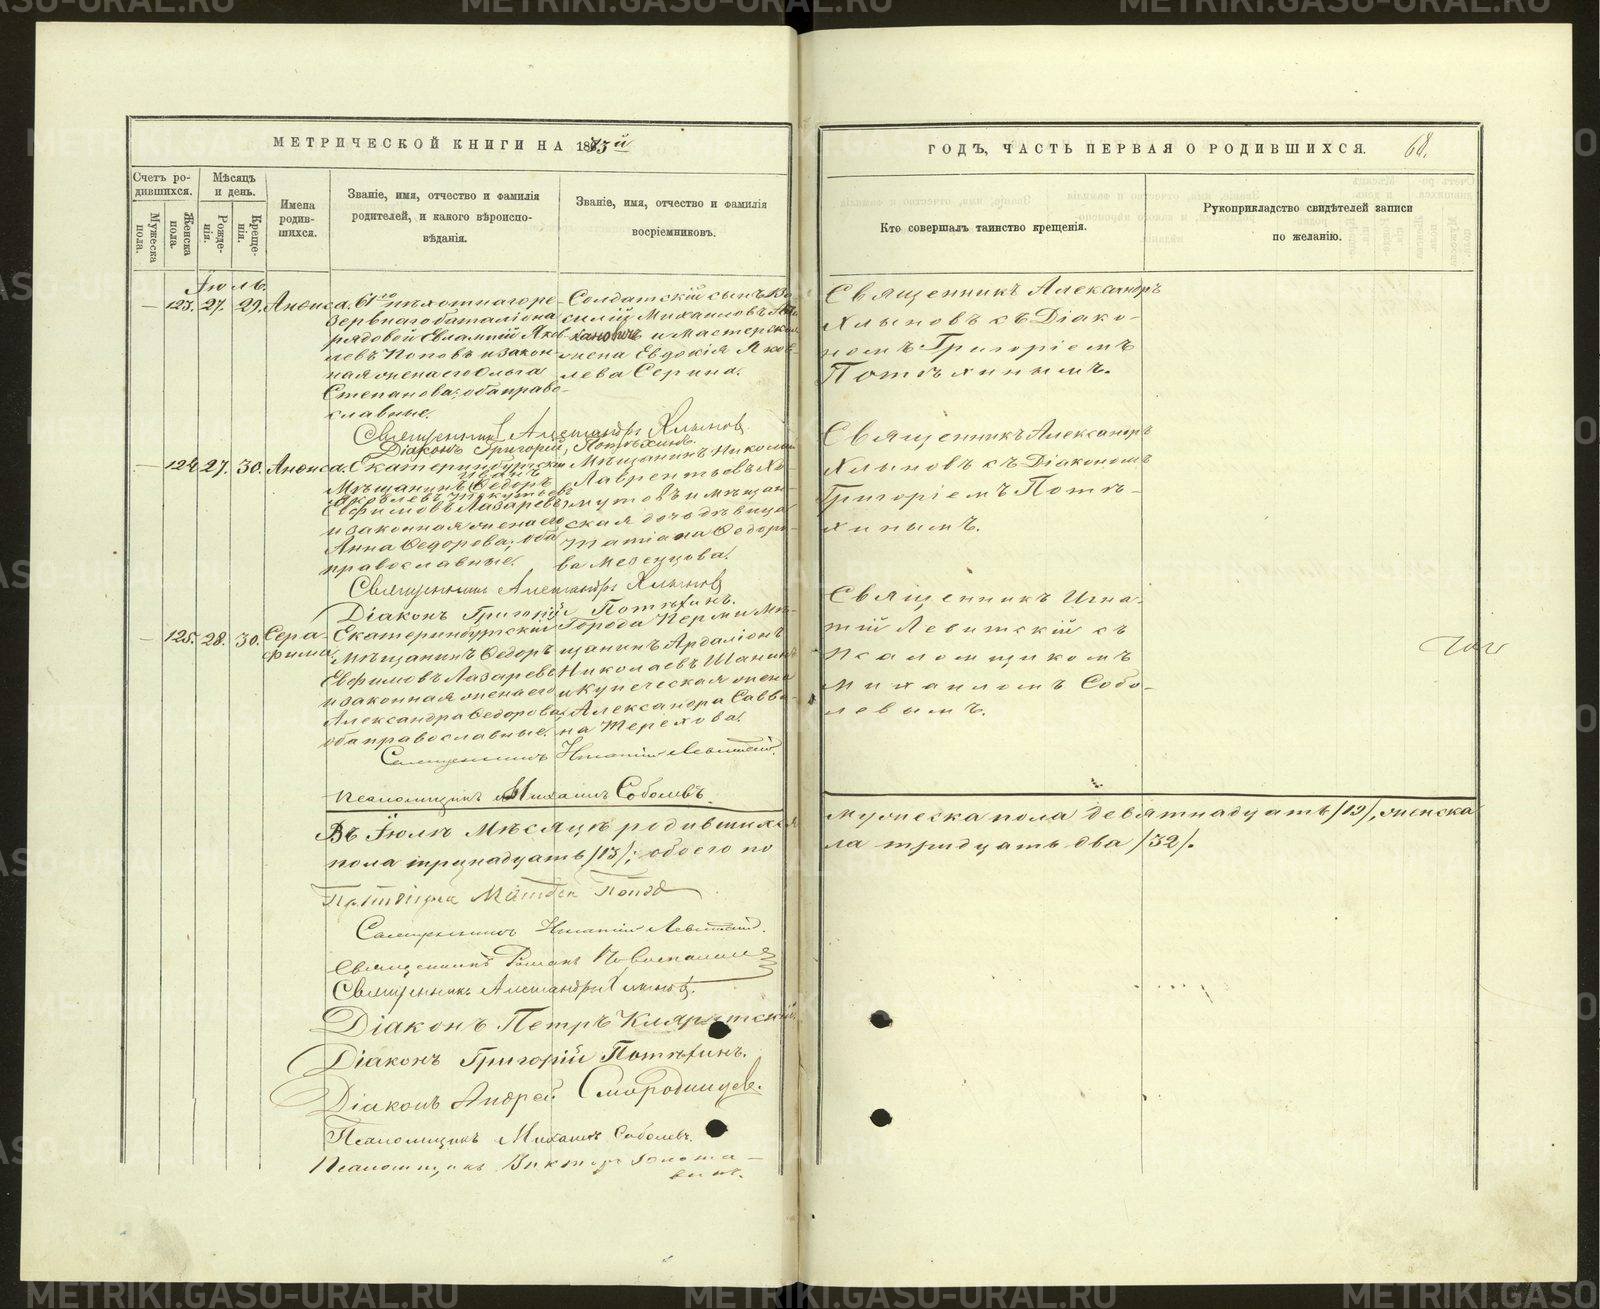 МЕТРИЧЕСКОЙ КНИГИ НА 1883й
ГОДЪ, ЧАСТЬ ПЕРВАЯ О РОДИВШИХСЯ. 68.
Счетъ родившихся.
Мужеска пола.
Женска пола.
Мѣсяцъ и день.
Рожденія.
Крещенія.
Имена родившихся.
Званіе, имя, отчество и фамилія
родителей, и какого вѣроиспо-
вѣданія.
Званіе, имя, отчество и фамилія
воспріемниковъ.
Кто совершалъ таинство крещенія.
Рукоприкладство свидѣтелей записи
по желанію.
Іюль.
— 123. 27. 29. Анѳиса.
61го пѣхотнаго ре-
зервнаго баталіона
рядовой Евлампій Яков-
левъ Поповъ и закон-
ная жена его Ольга
Степанова; оба право-
славные.
Солдатскій сынъ Ва-
силій Михаиловъ
и Мастерская
жена Евдокія Яков-
лева Серина.
Священникъ Александръ
Хлыновъ съ Діако-
номъ Григоріемъ
Потѣхинымъ.
Священникъ Александръ Хлыновъ
Діаконъ Григорій Потѣхинъ
— 124. 27. 30. Анѳиса.
Екатеринбургскій
Мѣщанинъ Ѳедоръ
Евфимовъ Лазаревъ
и законная жена его
Анна Ѳедорова; оба
православные.
Мѣщанинъ Николай
Лаврентьевъ Хо-
мутовъ и мѣщан-
ская дочь дѣвица
Татіана Ѳедоро-
ва Мезенцова.
Священникъ Александръ
Хлыновъ съ Діакономъ
Григоріемъ Потѣ-
хинымъ.
Священникъ Александръ Хлыновъ
Діаконъ Григорій Потѣхинъ.
— 125. 28. 30. Сера-
фима.
Екатеринбургскій
Мѣщанинъ Ѳедоръ
Евфимовъ Лазаревъ
и законная жена его
Александра Ѳедорова;
оба православные.
Города Перми Мѣ-
щанинъ Ардаліонъ
Николаевъ Шанинъ
и Купеческая жена
Александра Савви-
на Терехова.
Священникъ Игна-
тій Левитскій съ
Псаломщикомъ
Михаиломъ Собо-
левымъ.
Священникъ Игнатій Левитскій.
Псаломщикъ Михаилъ Соболевъ.
Въ Іюлѣ Мѣсяцѣ родившихся
мужеска пола девятнадцать /19/, женска
пола тринадцать /13/; обоего по
ла тридцать два /32/.
Священникъ Игнатій Левитскій.
Священникъ Александръ Хлыновъ.
Діаконъ Петръ
Діаконъ Григорій Потѣхинъ.
Діаконъ Андрей Смородинцевъ.
Псаломщикъ Михаилъ Соболевъ.
Псаломщикъ Викторъ
METRIKI.GASO-URAL.RU